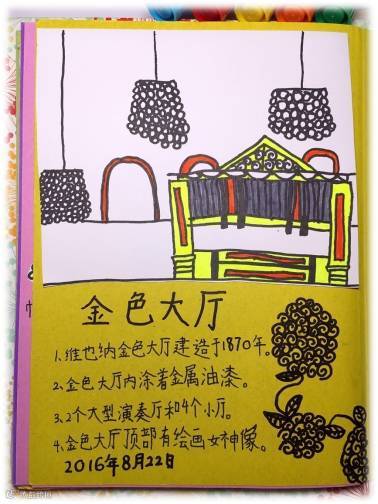 金色大厅
1.维也纳金色大厅建造于1870年。
2.金色大厅内涂着金属油漆。
3.2个大型演奏厅和4个小厅。
4.金色大厅顶部有绘画女神像。
2016年8月22日